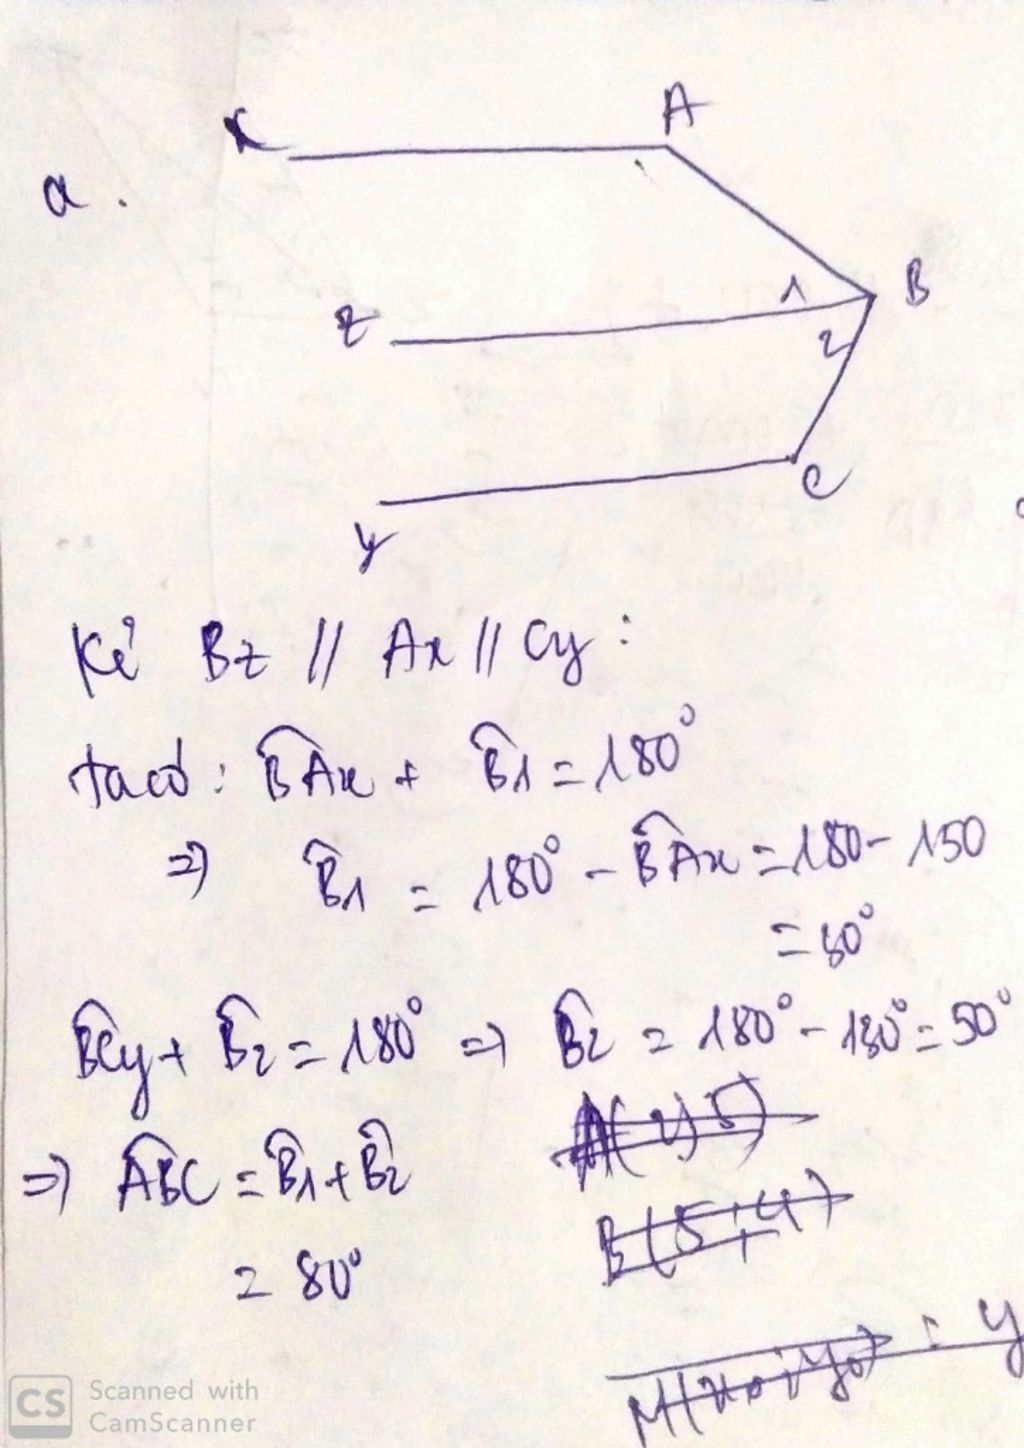 x A
a.
1 B
z
2
C
y
Kẻ Bz // Ax // Cy :
ta có : BAx + B1 = 180°
=> B1 = 180° - BAx = 180 - 150
= 30°
BCy + B2 = 180° => B2 = 180° - 130° = 50°
=> ABC = B1 + B2
B(5;4)
= 80°
M(x0;y0) : y
CS Scanned with
CamScanner